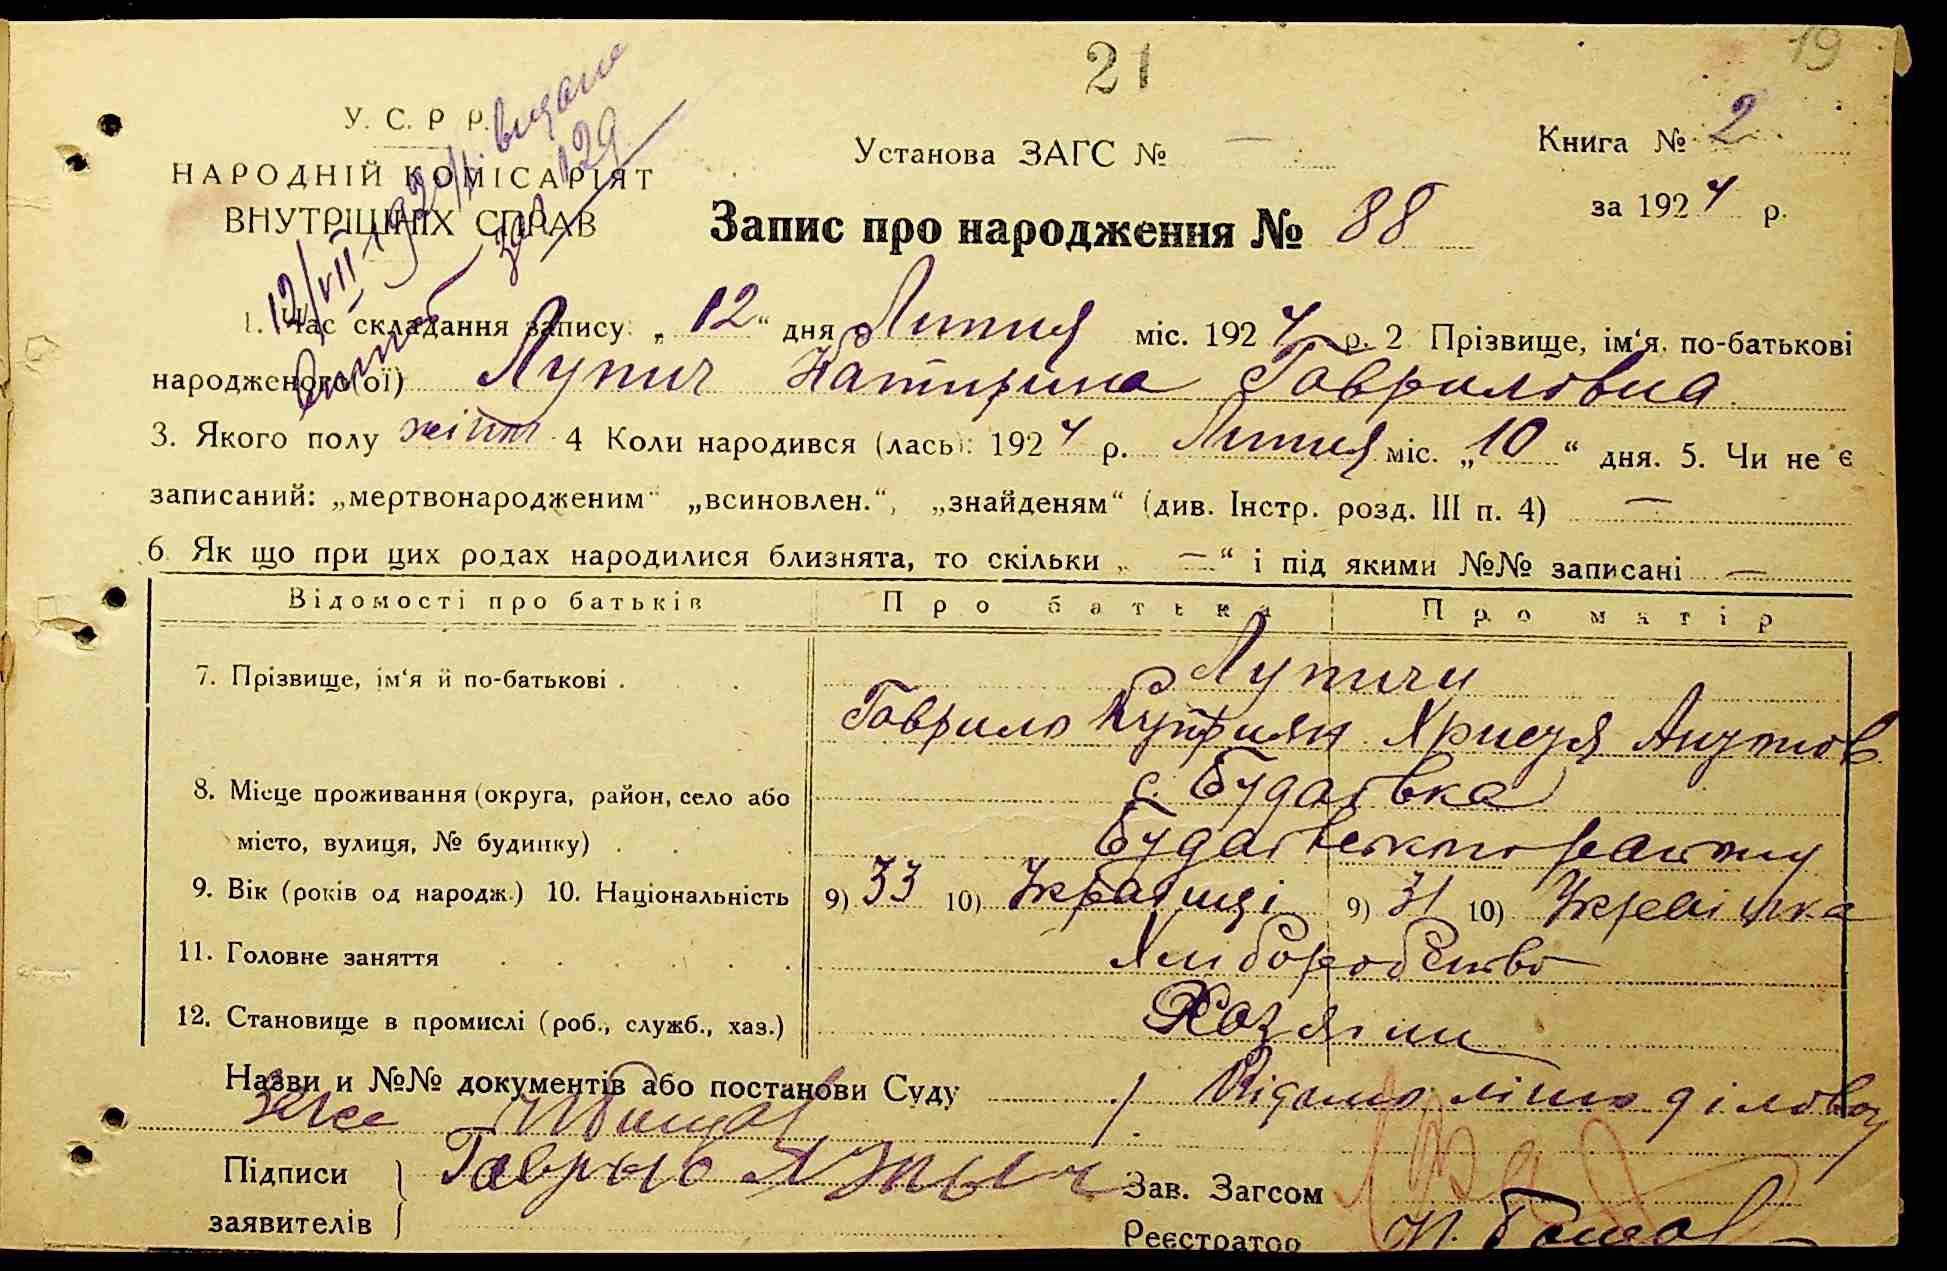 21
19
У. С. Р Р.
НАРОДНІЙ КОМІСАРІЯТ
ВНУТРІШНІХ СПРАВ
12/VII 192 видано
129
Установа ЗАГС № —
Книга № 2
за 1924 р.
Запис про народження № 88
1. Час складання запису: „12“ дня Липня міс. 1924 р. 2 Прізвище, ім‘я, по-батькові
народженого(ої) Лупич Катирина Гавриловна
3. Якого полу жіноч 4 Коли народився (лась): 1924 р. Липня міс. „10“ дня. 5. Чи не є
записаний: „мертвонародженим“ „всиновлен.“, „знайденям“ (див. Інстр. розд. III п. 4) —
6 Як що при цих родах народилися близнята, то скільки „ — “ і під якими №№ записані —
Відомості про батьків Про батька Про матір
7. Прізвище, ім‘я й по-батькові . Лупичи
Гаврило Купріян Христя Антонов
8. Місце проживання (округа, район, село або с. Будаївка
місто, вулиця, № будинку) . Будаївського району
9. Вік (років од народж.) 10. Національність 9) 33 10) Українці 9) 31 10) Українка
11. Головне заняття Хліборобство
12. Становище в промислі (роб., служб., хаз.) Хазяїни
Назви и №№ документів або постанови Суду
Підписи
заявителів
Гаврыло Лупыч
Зав. Загсом
Реєстратор